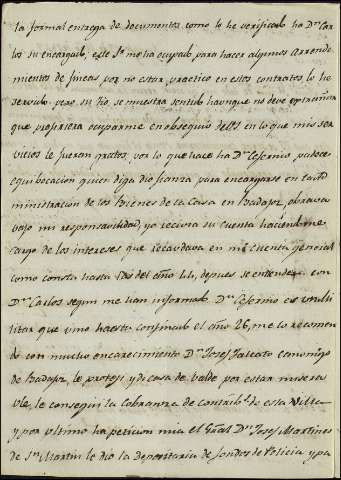 la formal entrega de documentos como lo he verificado ha Dn Car
los su encargado, este Sr me ha ocupado para hacer algunos Arrenda
mientos de fincas por no estar practico en estos contratos, lo he
servido pero su tio, se muestra sentido haunque no deve extrañar
que prefiriera ocuparme en obsequio de en lo que mis ser
vicios le fueran gratos; por lo que hace ha Dn Ceferino padece
equibocacion quien diga dio fianza para encargarse en la Ad
ministracion de los Bienes de la Casa en Badajoz, obravase
bajo mi responsavilidad, yo recivia su cuenta haciendome
cargo de los intereses que recaudava en mi cuenta general
como consta hasta del año 44, depues se entendera con
Dn Carlos segun me han informado Dn Ceferino es un Mi
litar que vino ha esta confinado el año 26, me lo recomen
do con mucho encarecimiento Dn Josef economo
de Badajoz, le proteji y di casa de valde por estar misera
vle, le consegui la cobranza de de esta Villa
y por ultimo ha peticion mia el Gñal Dn Josef Martines
de Sn Martin le dio la depositaria de fondos de Policia y pa